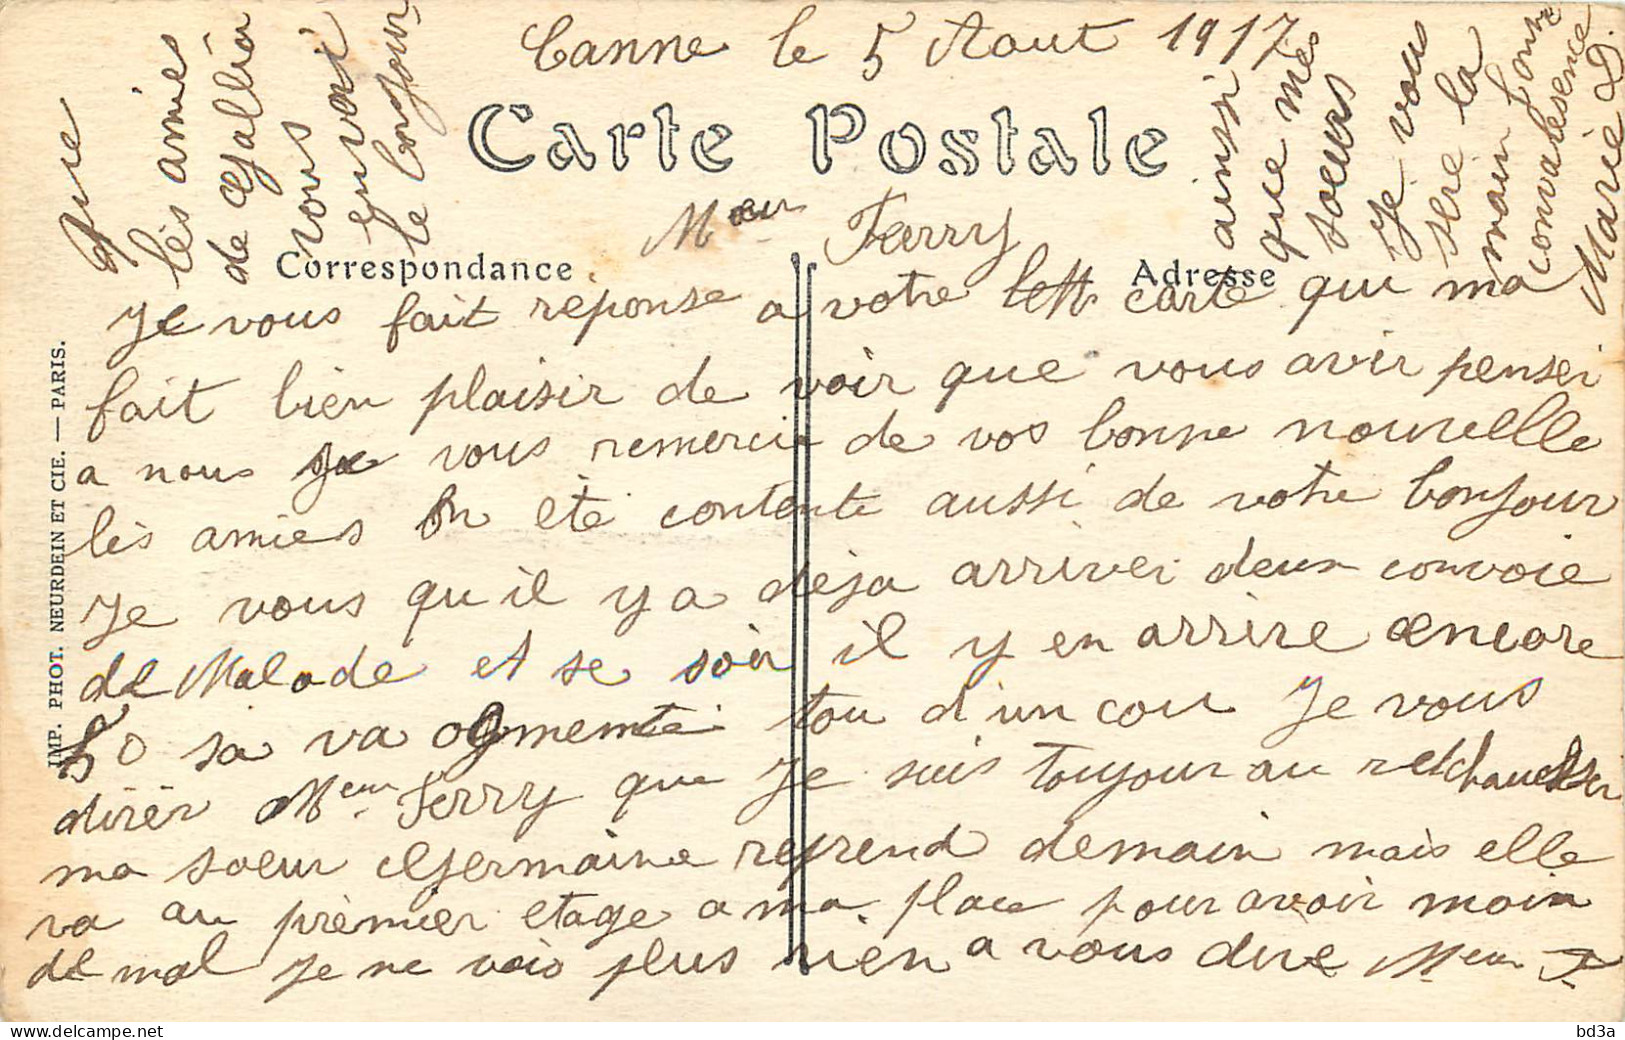 Canne le 5 Aout 1917
Carte Postale
Correspondance
Adresse
Meur Ferry
Je vous fait reponse a votre lett carte qui ma
fait bien plaisir de voir que vous avir pensei
a nous Je vous remercie de vos bonne nouvelle
lès amies On été contente aussi de votre bonjour
Je vous qu il y a déja arriver deux convoie
de Malade et se soir il y en arrire encore
50 sa va ogmenté tou d'un cou Je vous
dirér Meur Ferry que Je suis toujour au
ma soeur Germaine reprend demain mais elle
va au prèmier etage a ma place pour avoir moin
de mal Je ne vois plus rien a vous dire Meur F.
Que
lès amies
de
vous
envoi
le bonjour
ainsi
que mes
soeurs
Je vous
sere la
main
convalesence
Marie G.
IMP. PHOT. NEURDEIN ET CIE. — PARIS.
bd3a
delcampe.net